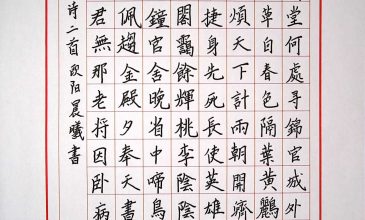 堂何處尋錦官城外
草自春色隔葉黃鸝
煩天下計兩朝開濟
捷身先死長使英雄
閣靄餘輝桃李陰陰
鐘官舍晚省中啼鳥
佩趨金殿夕奉天書
君無那老將因卧病
诗二首 欧阳晨曦書